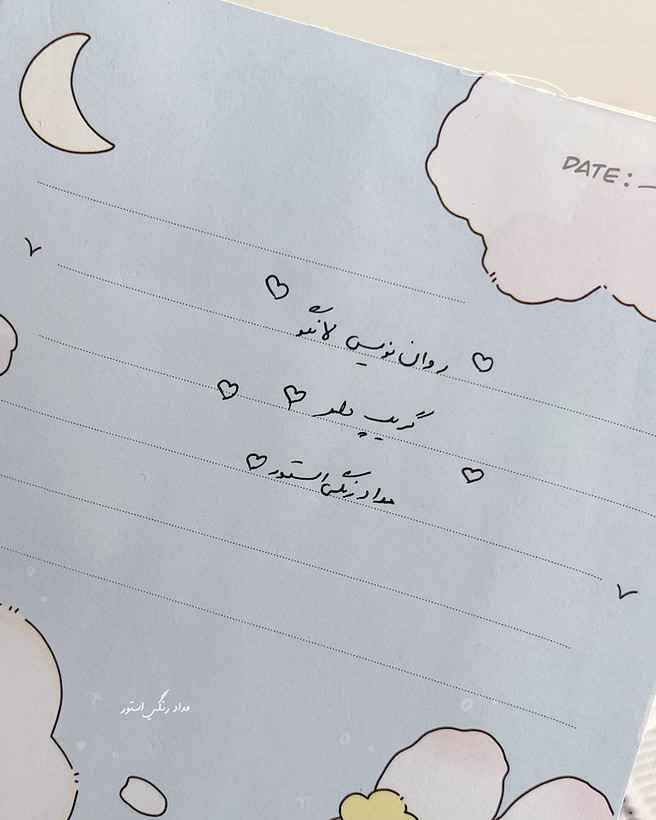 DATE:
روان نویس لانتو
گریپ پلو
مداد رنگی استور
مداد رنگی استور